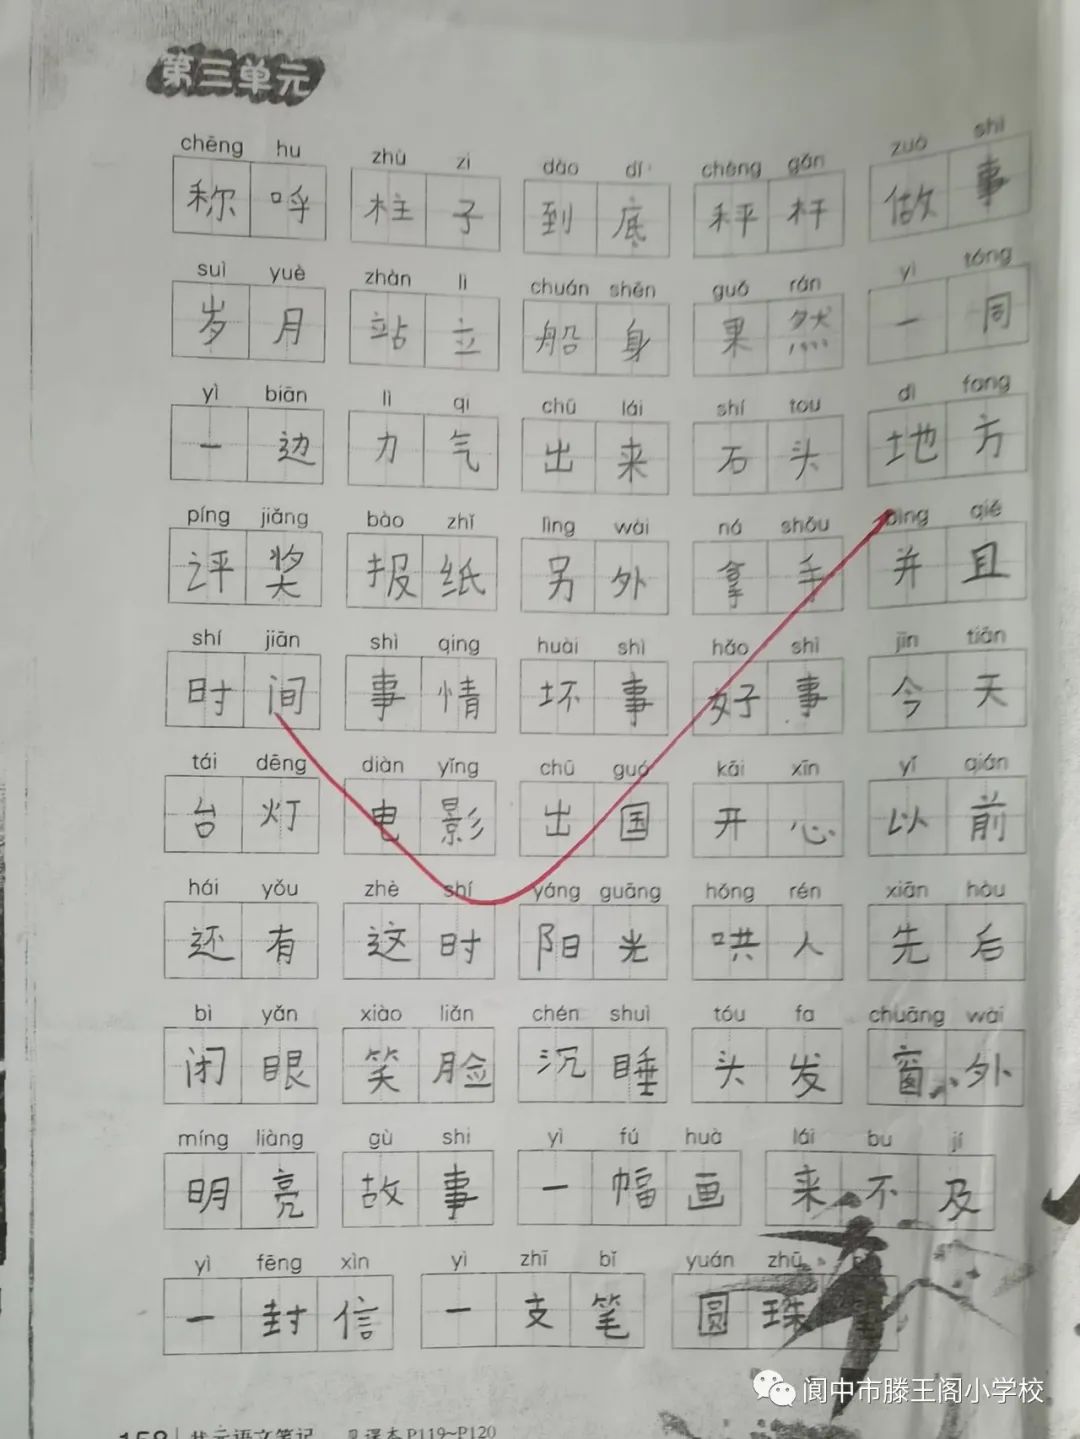 第三单元
chēng hu zhù zi dào dǐ chèng gǎn zuò shì
称呼 柱子 到底 秤杆 做事
suì yuè zhàn lì chuán shēn guǒ rán yì tóng
岁月 站立 船身 果然 一同
yì biān lì qi chū lái shí tou dì fang
一边 力气 出来 石头 地方
píng jiǎng bào zhǐ lìng wài ná shǒu bìng qiě
评奖 报纸 另外 拿手 并且
shí jiān shì qing huài shì hǎo shì jīn tiān
时间 事情 坏事 好事 今天
tái dēng diàn yǐng chū guó kāi xīn yǐ qián
台灯 电影 出国 开心 以前
hái yǒu zhè shí yáng guāng hǒng rén xiān hòu
还有 这时 阳光 哄人 先后
bì yǎn xiào liǎn chén shuì tóu fa chuāng wài
闭眼 笑脸 沉睡 头发 窗外
míng liàng gù shi yì fú huà lái bu jí
明亮 故事 一幅画 来不及
yì fēng xìn yì zhī bǐ yuán zhū
一封信 一支笔 圆珠
阆中市滕王阁小学校
158 状元语文笔记 见课本P119~P120